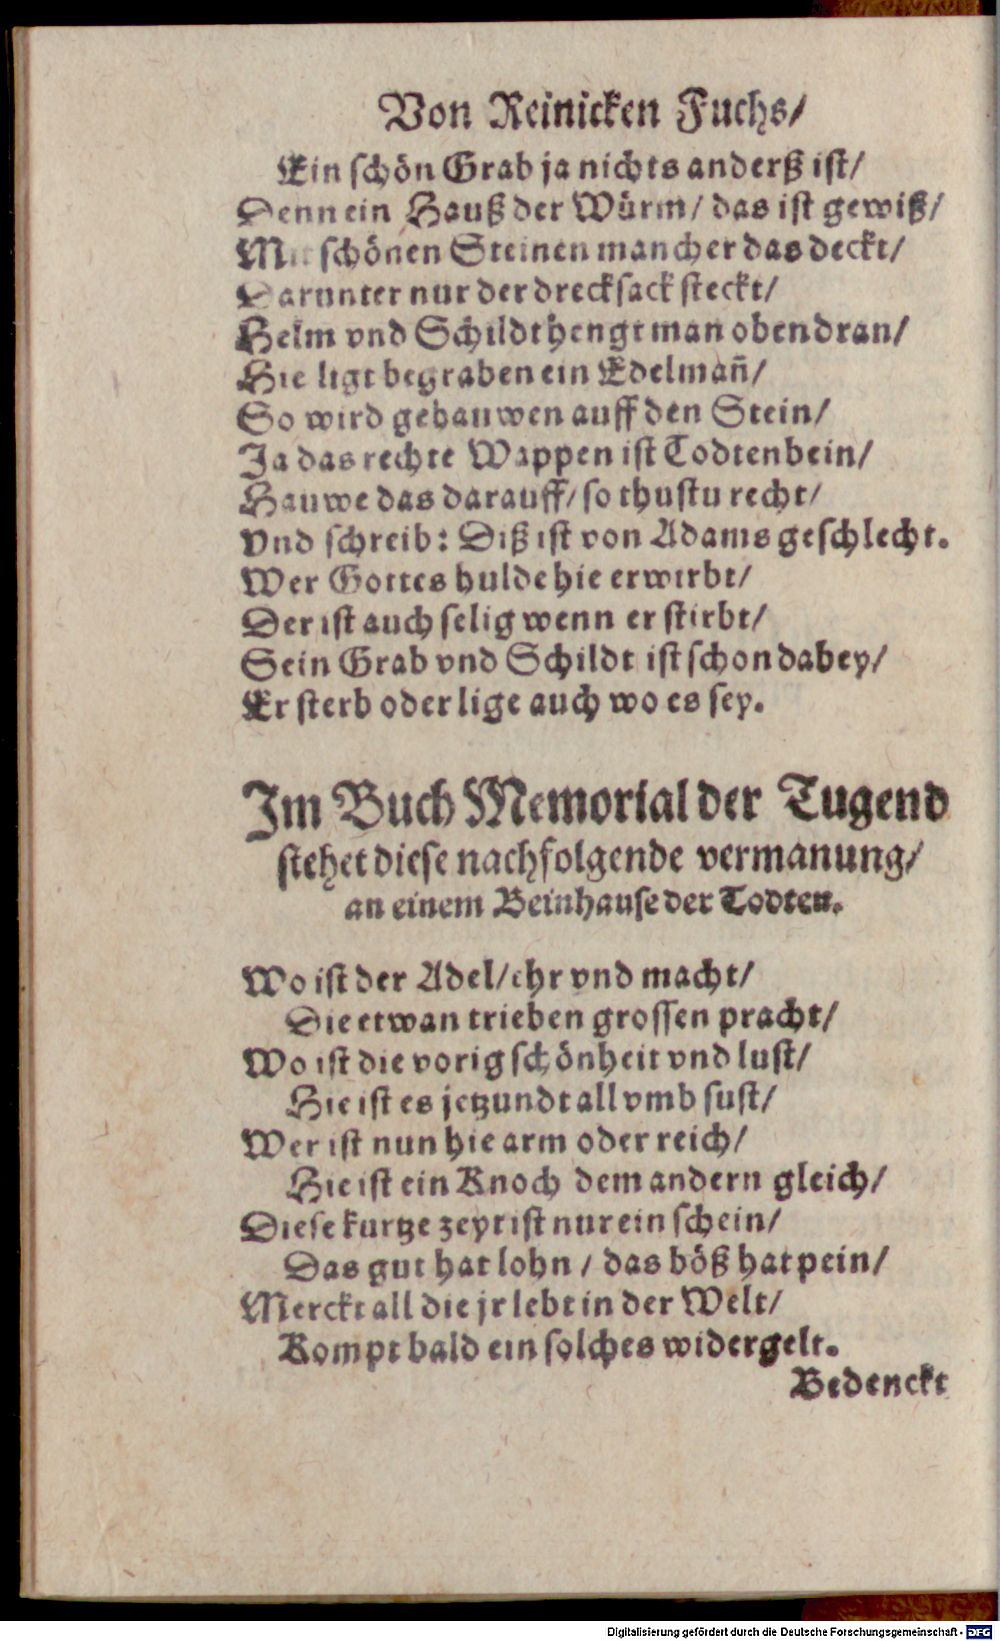 Von Reinicken Fuchs/
Ein schön Grab ja nichts anderß ist/
Denn ein Hauß der Würm/ das ist gewiß/
Mit schönen Steinen mancher das deckt/
Darunter nur der drecksack steckt/
Helm vnd Schildt hengt man oben dran/
Hie ligt begraben ein Edelmañ/
So wird gehauwen auff den Stein/
Ja das rechte Wappen ist Todtenbein/
Hauwe das darauff/ so thustu recht/
Vnd schreib: Diß ist von Adams geschlecht.
Wer Gottes hulde hie erwirbt/
Der ist auch selig wenn er stirbt/
Sein Grab vnd Schildt ist schon dabey/
Er sterb oder lige auch wo es sey.
Im Buch Memorial der Tugend
stehet diese nachfolgende vermanung/
an einem Beinhause der Todten.
Wo ist der Adel/ ehr vnd macht/
Die etwan trieben grossen pracht/
Wo ist die vorig schönheit vnd lust/
Hie ist es jetzundt all vmb sust/
Wer ist nun hie arm oder reich/
Hie ist ein Knoch dem andern gleich/
Diese kurtze zeyt ist nur ein schein/
Das gut hat lohn / das böß hat pein/
Merckt all die jr lebt in der Welt/
Kompt bald ein solches widergelt.
Bedenckt
Digitalisierung gefördert durch die Deutsche Forschungsgemeinschaft - DFG